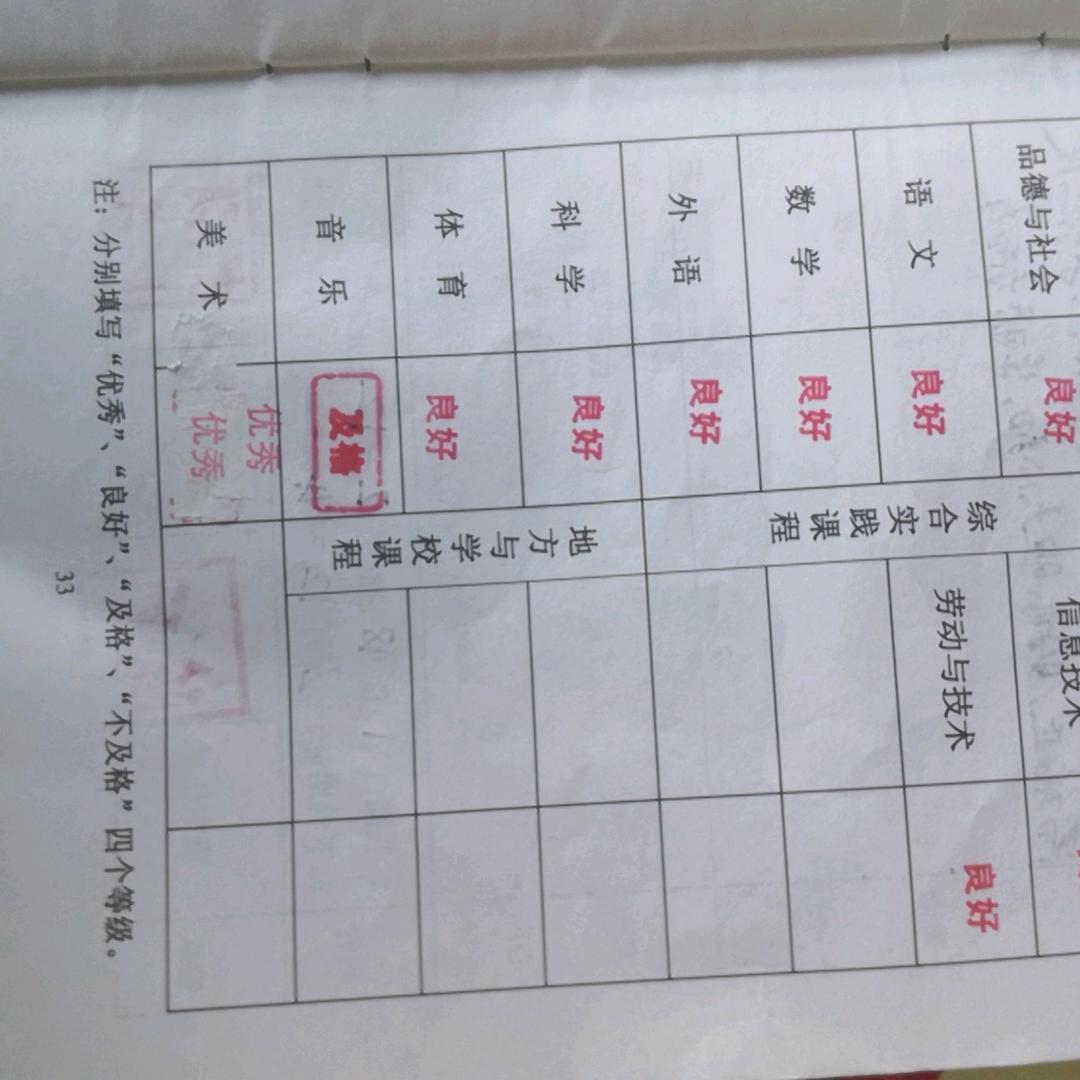 品德与社会 良好 信息技术
语文 良好 综合实践课程 劳动与技术 良好
数学 良好
外语 良好
科学 良好 地方与学校课程
体育 良好
音乐 及格
美术 优秀 优秀
注：分别填写“优秀”、“良好”、“及格”、“不及格”四个等级。
33